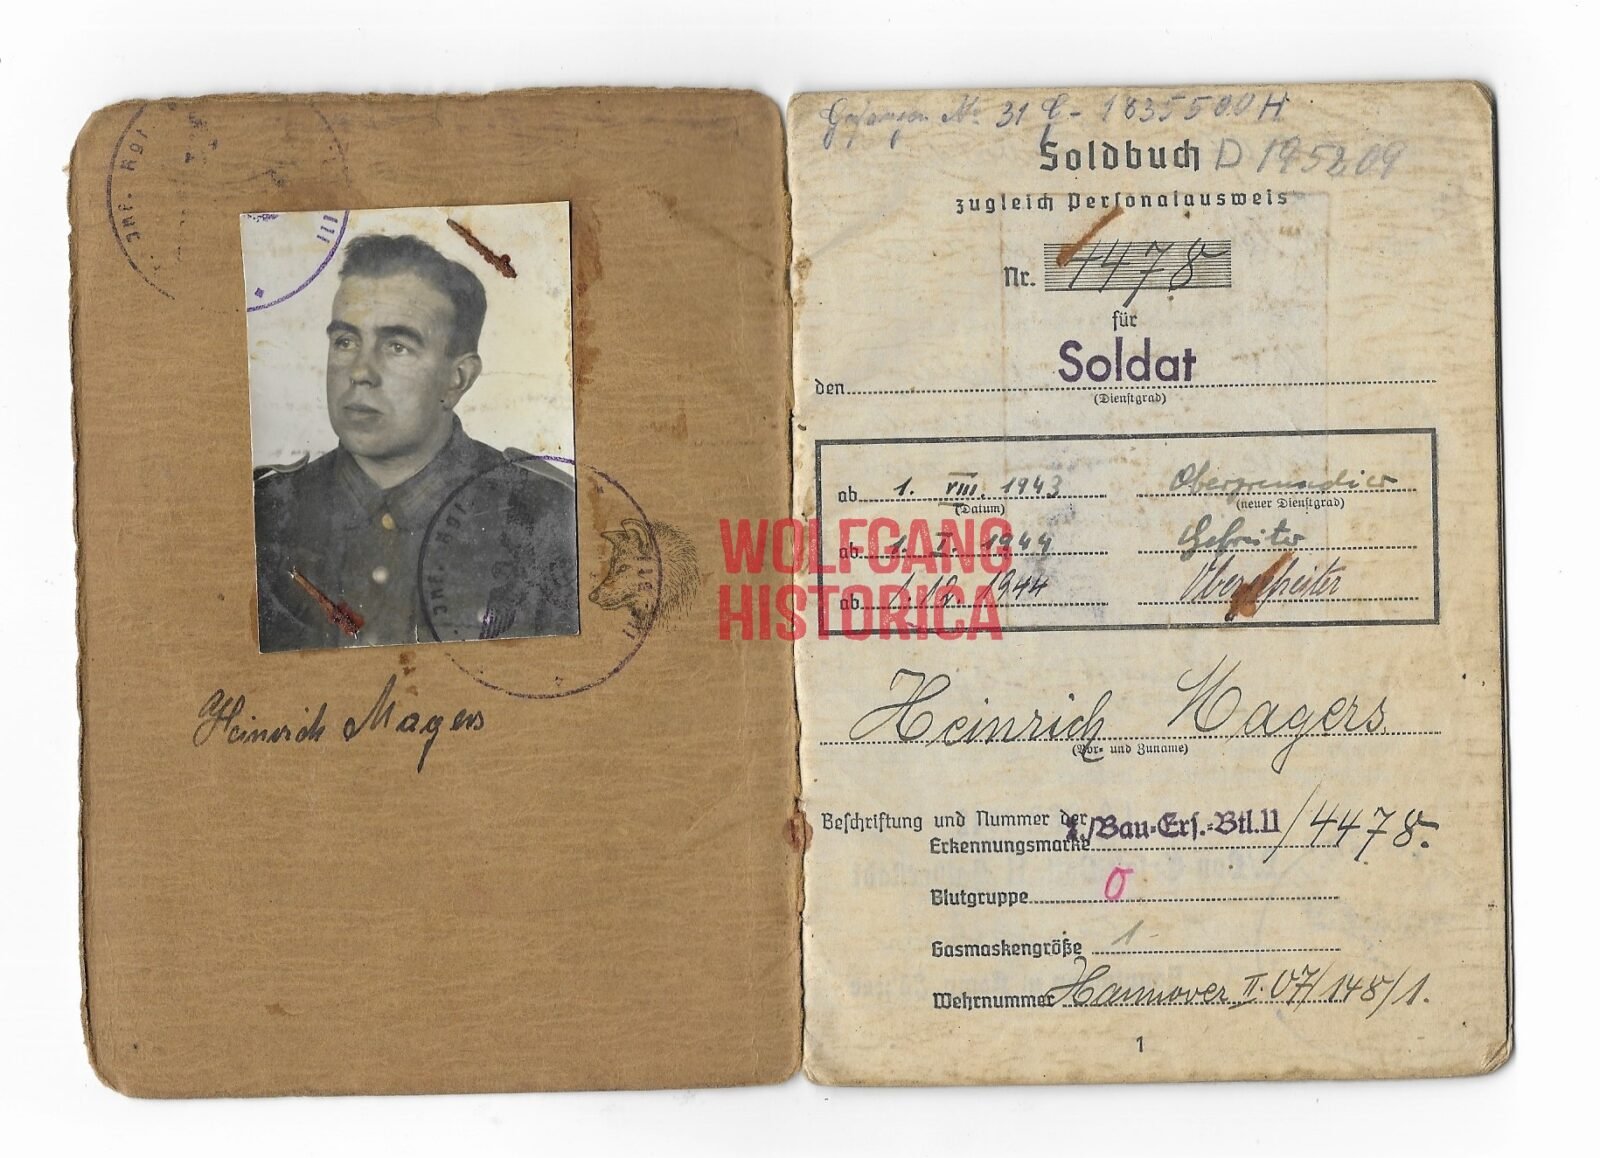 Inf. Rgt.
III
Inf. Rgt.
III
Heinrich Magers
WOLFGANG
HISTORICA
Gefangen Nr. 31 G - 1835500 H
Soldbuch D 195209
zugleich Personalausweis
Nr. 4478
für
den Soldat
(Dienstgrad)
ab 1. VIII. 1943
(Datum) (neuer Dienstgrad)
ab 1. I. 1944 Gefreiter
ab 1. 12. 1944 Obergefreiter
Heinrich Magers.
(Vor- und Zuname)
Beschriftung und Nummer der
Erkennungsmarke ./Bau-Ers.-Btl. 11 / 4478.
Blutgruppe 0
Gasmaskengröße 1-
Wehrnummer Hannover II. 07/148/1.
1